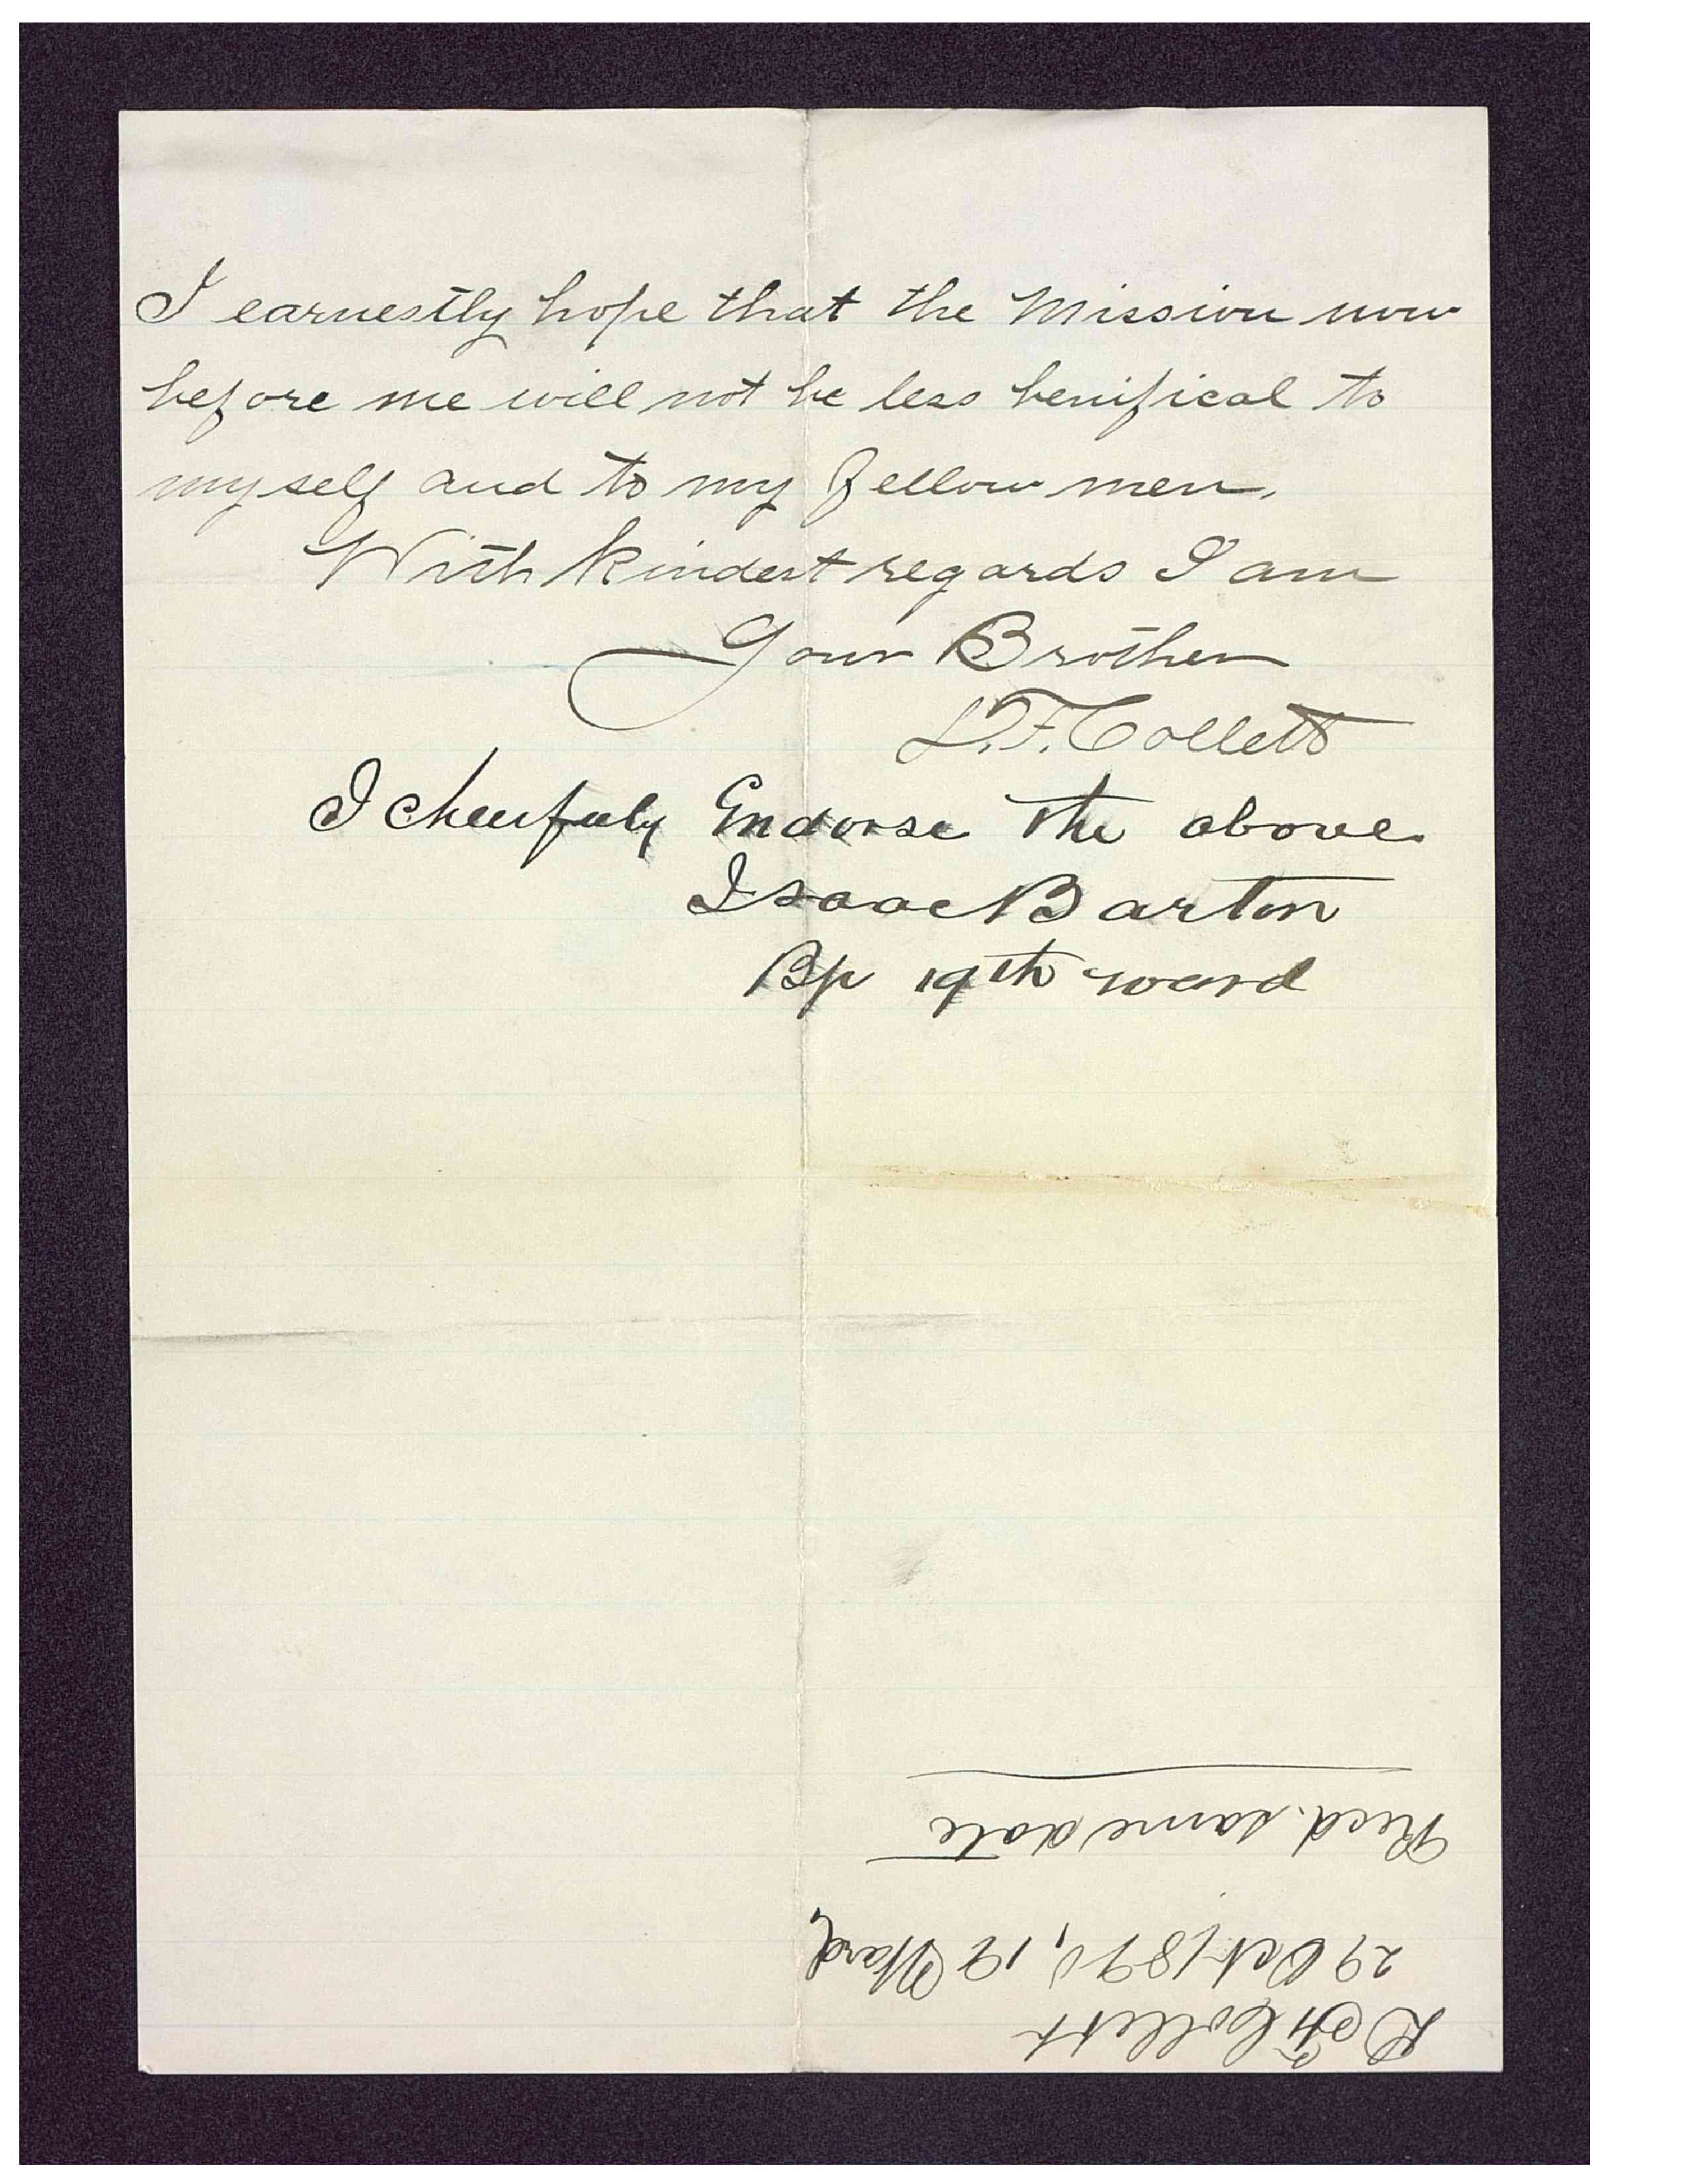 I earnestly hope that the Mission now
before me will not be less benifical to
my self and to my fellow men.
With kindest regards I am
Your Brother
L.F. Collett
I cheerfuly Endorse the above
Isaac Barton
Bp 19th ward
L F Collett
29 Oct 1890, 19 Ward,
Recd. same date